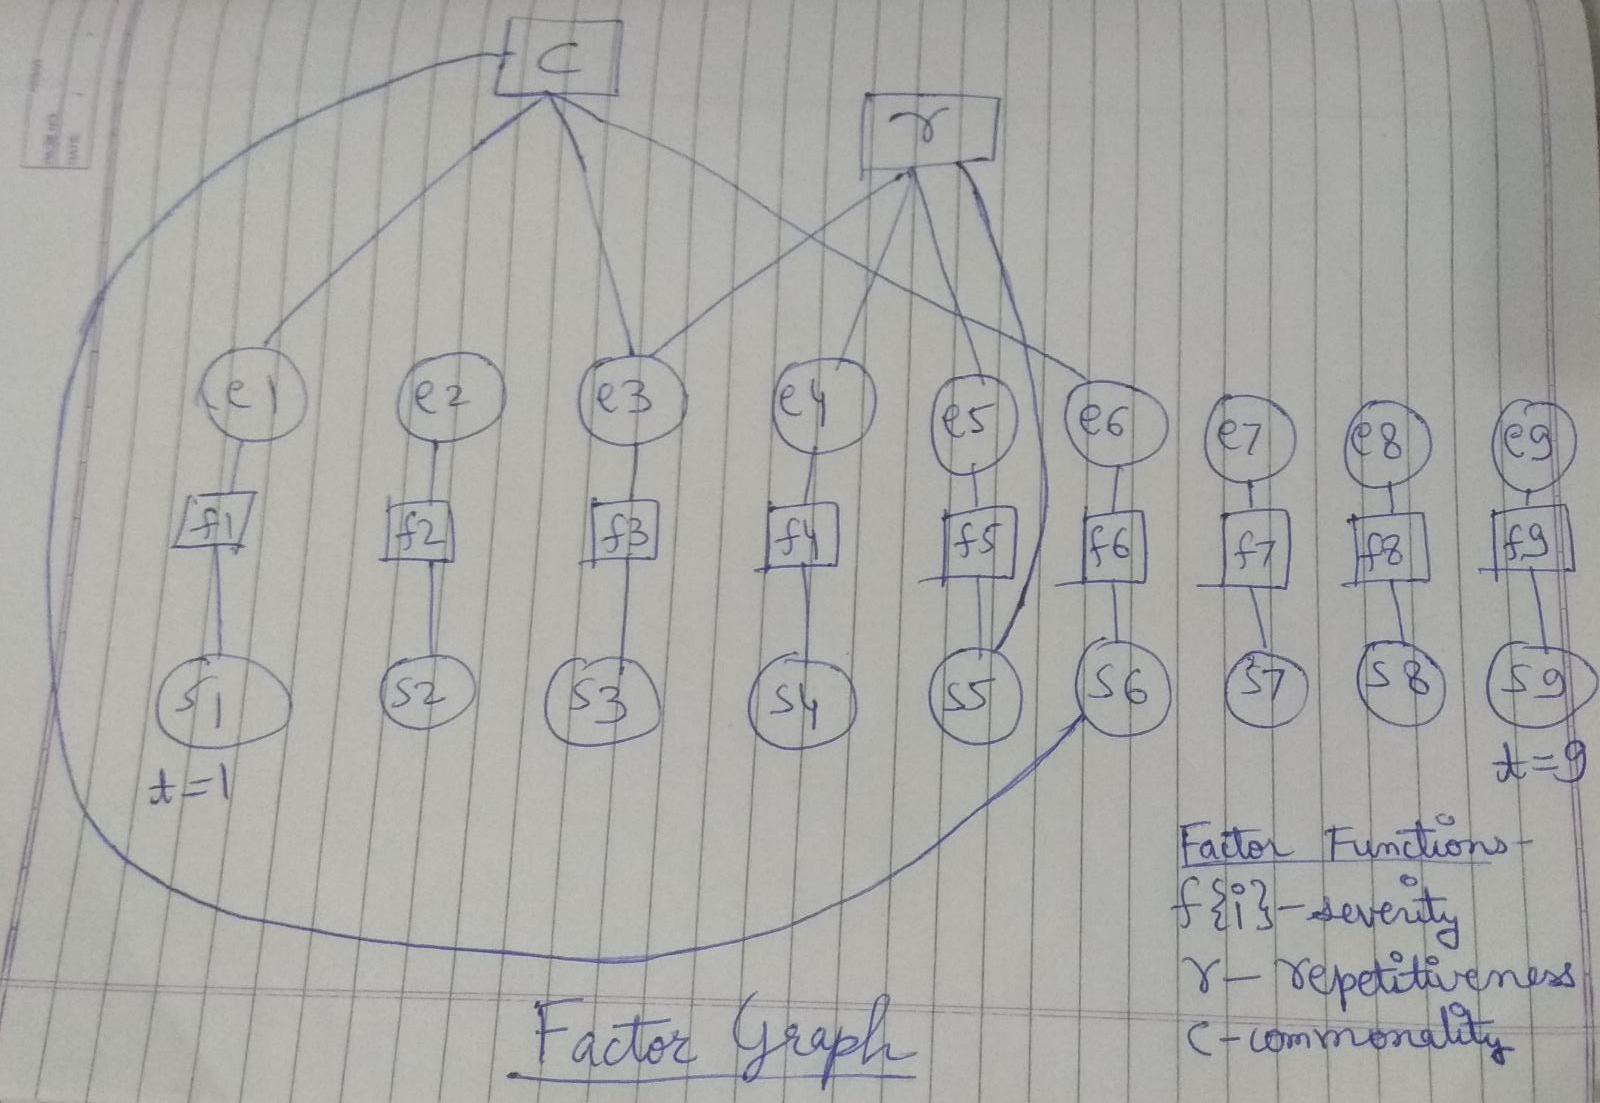 C
r
e1 e2 e3 e4 e5 e6 e7 e8 e9
f1 f2 f3 f4 f5 f6 f7 f8 f9
S1 S2 S3 S4 S5 S6 S7 S8 S9
t=1 t=9
Factor Functions-
f{i}-severity
r- repetitiveness
C-commonality
Factor Graph